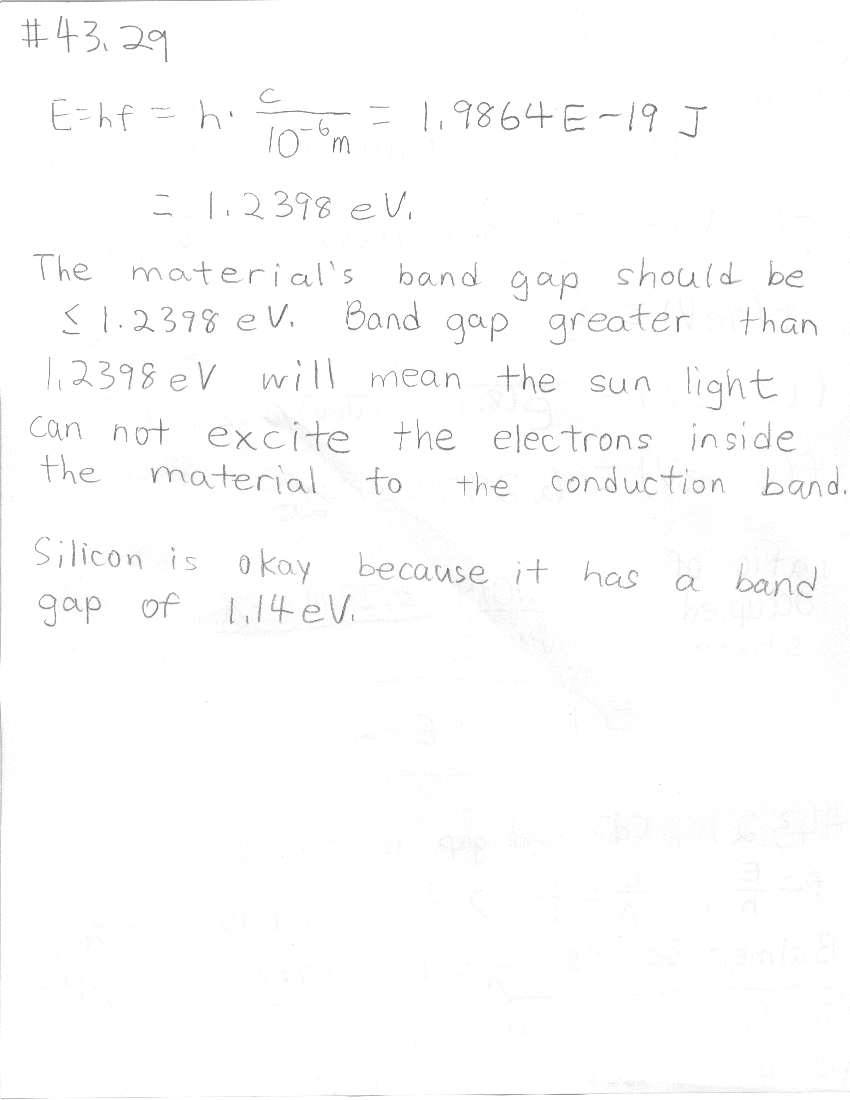 #43.29
E=hf = h· c/10⁻⁶m = 1.9864E-19 J
= 1.2398 eV.
The material's band gap should be
≤ 1.2398 eV. Band gap greater than
1.2398 eV will mean the sun light
can not excite the electrons inside
the material to the conduction band.
Silicon is okay because it has a band
gap of 1.14 eV.